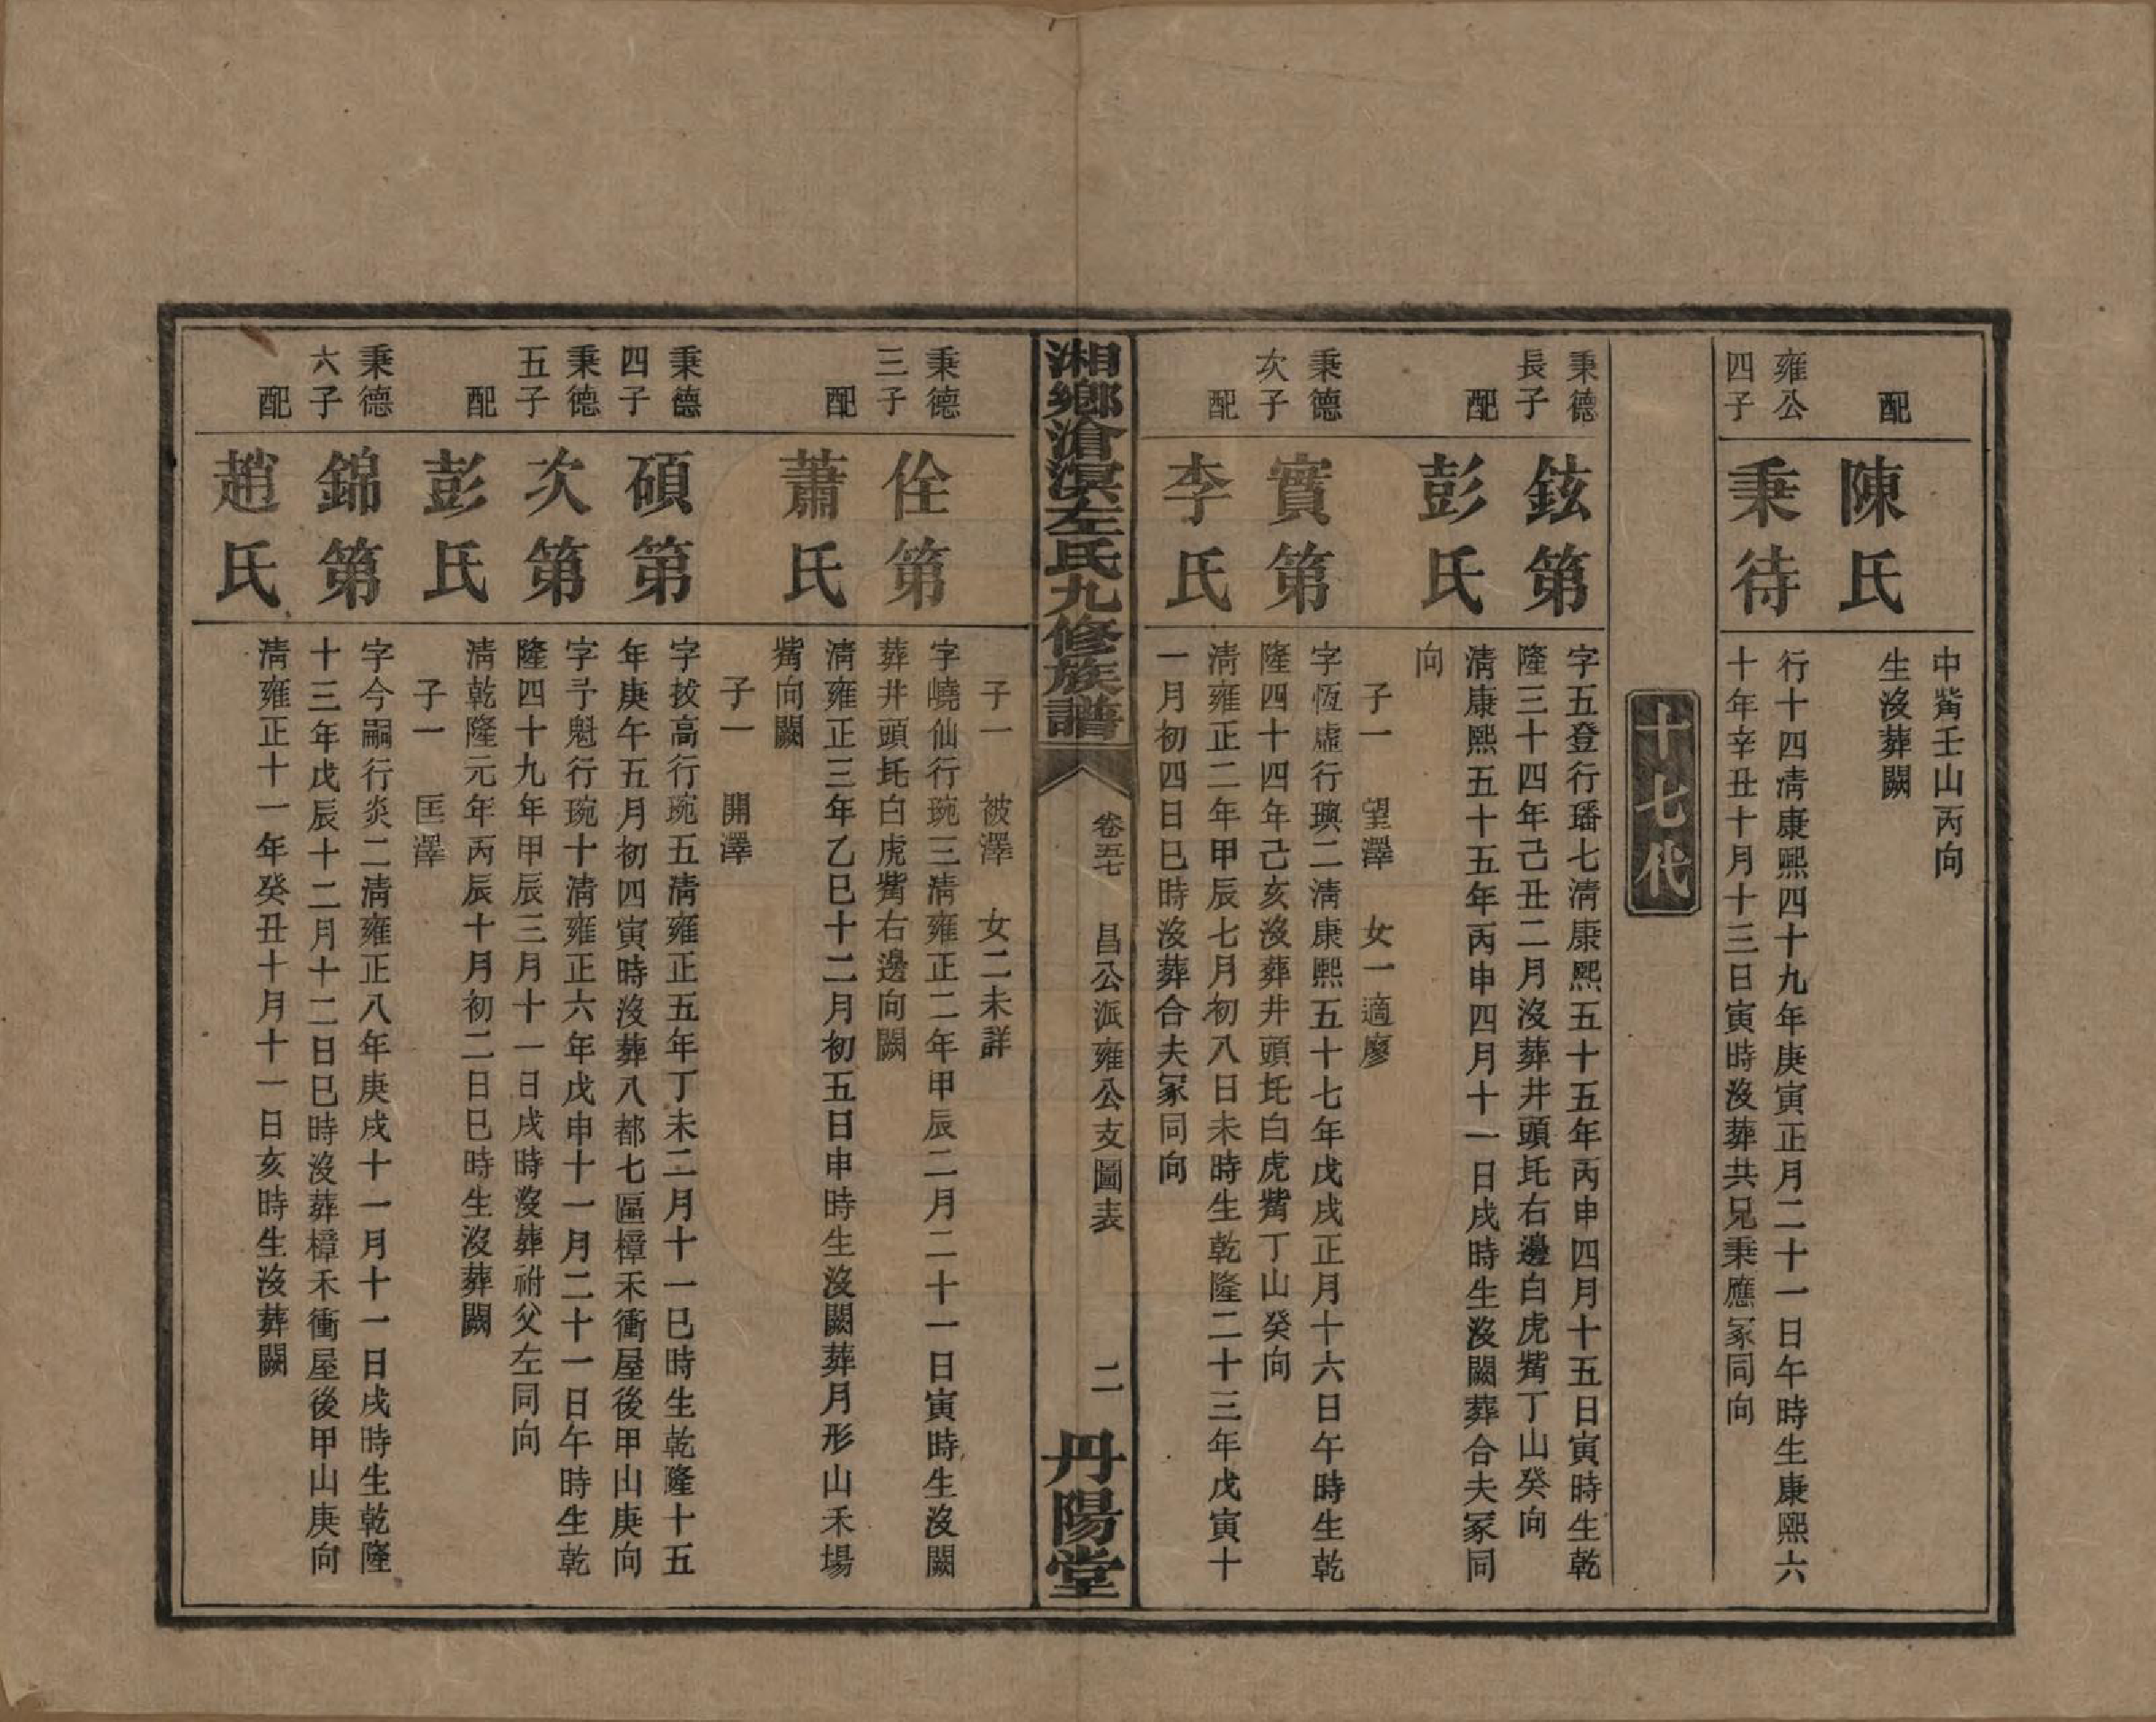 中觜壬山丙向
配
陳氏
生沒葬闕
雍公
四子
秉待
行十四淸康熙四十九年庚寅正月二十一日午時生康熙六
十年辛丑十月十三日寅時沒葬共兄秉應冢同向
十七代
秉德
長子
鉉第
字五登行璠七淸康熙五十五年丙申四月十五日寅時生乾
隆三十四年己丑二月沒葬井頭坉右邊白虎觜丁山癸向
配
彭氏
淸康熙五十五年丙申四月十一日戌時生沒闕葬合夫冢同
向
子一 望澤 女一適廖
秉德
次子
實第
字恆虛行璵二淸康熙五十七年戊戌正月十六日午時生乾
隆四十四年己亥沒葬井頭坉白虎觜丁山癸向
配
李氏
淸雍正二年甲辰七月初八日未時生乾隆二十三年戊寅十
一月初四日巳時沒葬合夫冢同向
湘鄉滄溟左氏九修族譜
卷五七 昌公派雍公支圖表 二
丹陽堂
子一 被澤 女二未詳
秉德
三子
佺第
字嶢仙行琬三淸雍正二年甲辰二月二十一日寅時生沒闕
葬井頭坉白虎觜右邊向闕
配
蕭氏
淸雍正三年乙巳十二月初五日申時生沒闕葬月形山禾場
觜向闕
子一 開澤
秉德
四子
碩第
字拔高行琬五淸雍正五年丁未二月十一巳時生乾隆十五
年庚午五月初四寅時沒葬八都七區樟禾衝屋後甲山庚向
秉德
五子
次第
字予魁行琬十淸雍正六年戊申十一月二十一日午時生乾
隆四十九年甲辰三月十一日戌時沒葬祔父左同向
配
彭氏
淸乾隆元年丙辰十月初二日巳時生沒葬闕
子一 匡澤
秉德
六子
錦第
字今嗣行炎二淸雍正八年庚戌十一月十一日戌時生乾隆
十三年戊辰十二月十二日巳時沒葬樟禾衝屋後甲山庚向
配
趙氏
淸雍正十一年癸丑十月十一日亥時生沒葬闕